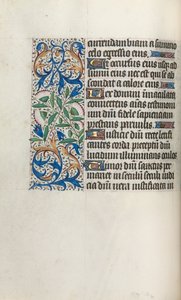 currendam viam a summo
celo egressio eius.
Et occursus eius usq; ad
sumū eius nec est qui se ab
scondat a calore eius.
Lex domini inmaculata
convertens aīas testimoni
um dn̄i fidele sapientiam
prestans parvulis.
Iusticie dn̄i recte letifi
cantes corda preceptū dn̄i
lucidum illuminans oculos
Timor dn̄i sanctus per
manet in seculū seculi iudi
cia dn̄i vera iustificata in